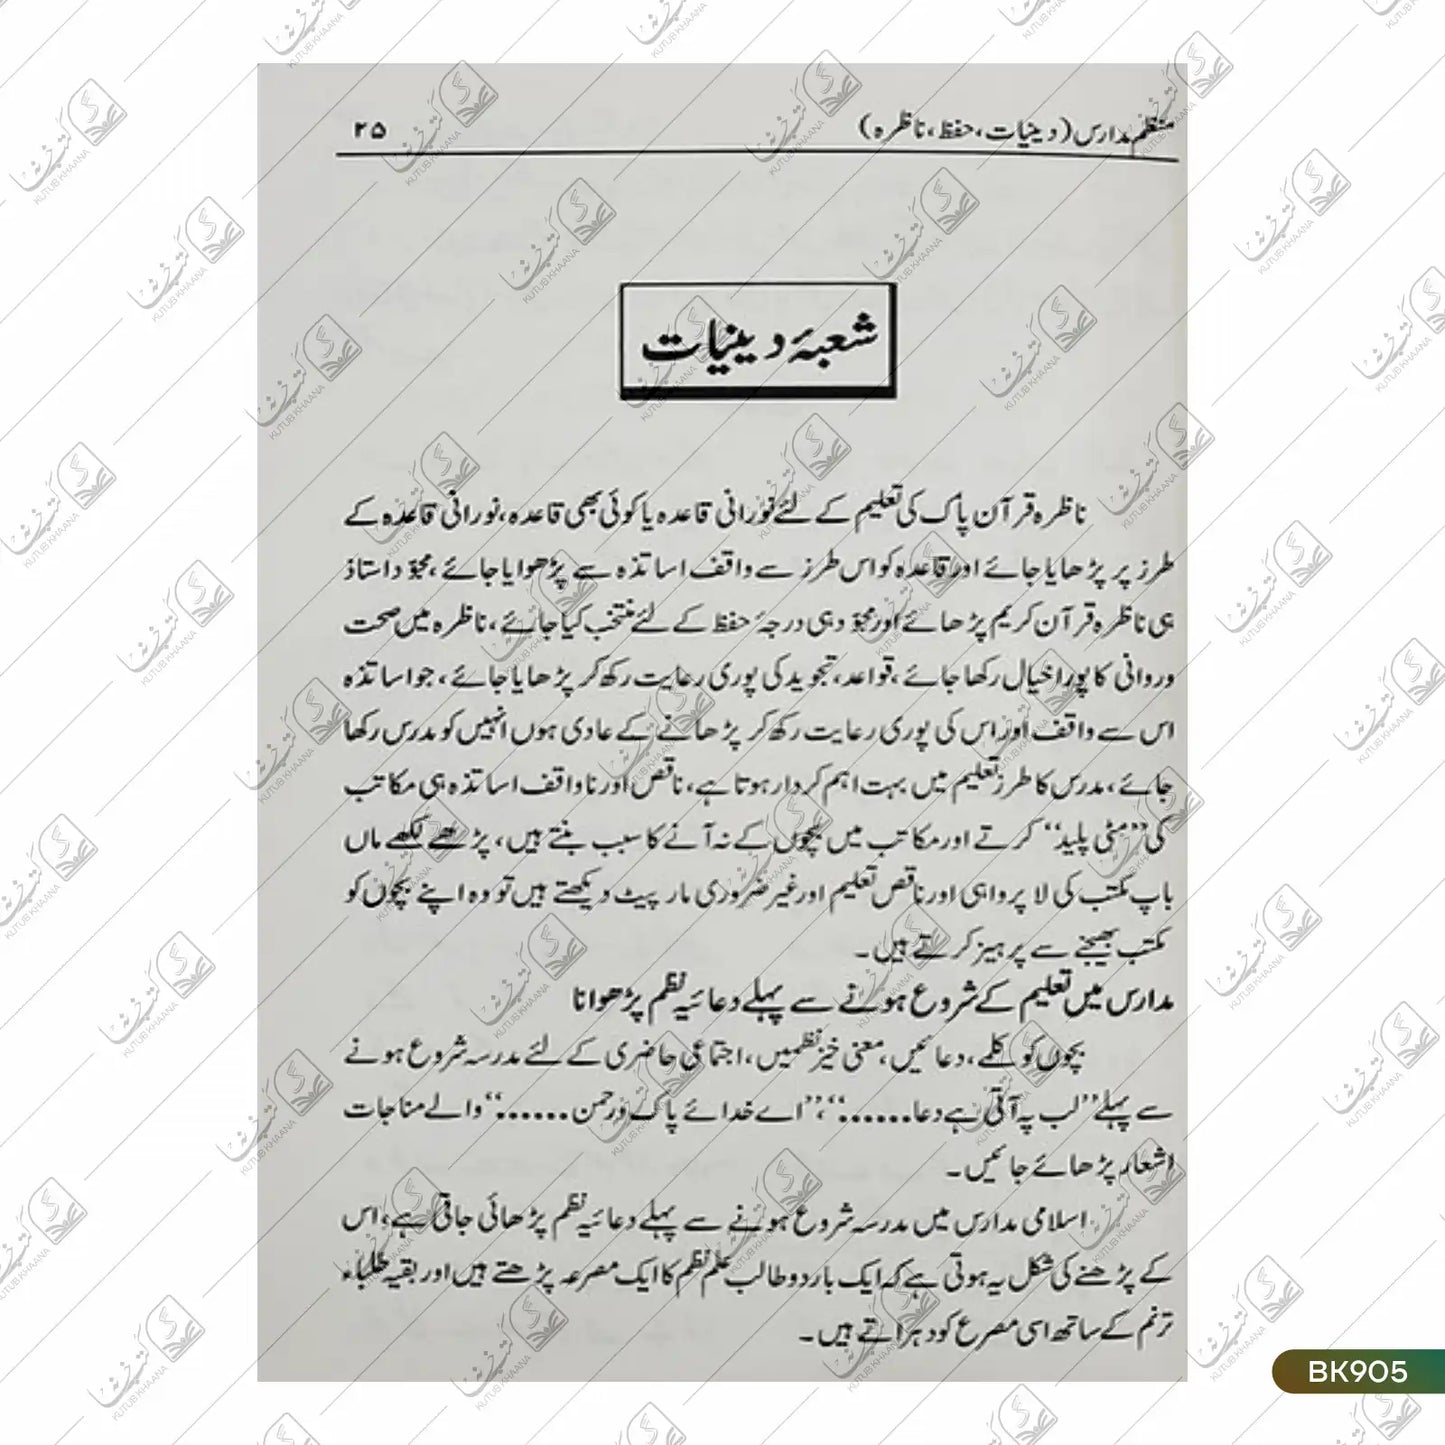 منظم مدارس (دینیات، حفظ، ناظرہ)
۲۵
شعبۂ دینیات
ناظرہ قرآن پاک کی تعلیم کے لئے نورانی قاعدہ یا کوئی بھی قاعدہ، نورانی قاعدہ کے
طرز پر پڑھایا جائے اور قاعدہ کو اس طرز سے واقف اساتذہ سے پڑھوایا جائے، مجوّد استاذ
ہی ناظرہ قرآن کریم پڑھائے اور مجوّد ہی درجۂ حفظ کے لئے منتخب کیا جائے، ناظرہ میں صحت
وروانی کا پورا خیال رکھا جائے، قواعد، تجوید کی پوری رعایت رکھ کر پڑھایا جائے، جو اساتذہ
اس سے واقف اور اس کی پوری رعایت رکھ کر پڑھانے کے عادی ہوں انہیں کو مدرس رکھا
جائے، مدرس کا طرز تعلیم میں بہت اہم کردار ہوتا ہے، ناقص اور ناواقف اساتذہ ہی مکاتب
کی ’’مٹی پلید‘‘ کرتے اور مکاتب میں بچوں کے نہ آنے کا سبب بنتے ہیں، پڑھے لکھے ماں
باپ مکتب کی لا پرواہی اور ناقص تعلیم اور غیر ضروری مار پیٹ دیکھتے ہیں تو وہ اپنے بچوں کو
مکتب بھیجنے سے پرہیز کرتے ہیں۔
مدارس میں تعلیم کے شروع ہونے سے پہلے دعائیہ نظم پڑھوانا
بچوں کو کلمے، دعائیں، معنی خیز نظمیں، اجتماعی حاضری کے لئے مدرسہ شروع ہونے
سے پہلے ’’لب پہ آتی ہے دعا......‘‘، ’’اے خدائے پاک ورحمن......‘‘ والے مناجات
اشعار پڑھائے جائیں۔
اسلامی مدارس میں مدرسہ شروع ہونے سے پہلے دعائیہ نظم پڑھائی جاتی ہے، اس
کے پڑھنے کی شکل یہ ہوتی ہے کہ ایک بار دو طالب علم نظم کا ایک مصرعہ پڑھتے ہیں اور بقیہ طلباء
ترنم کے ساتھ اسی مصرع کو دہراتے ہیں۔
BK905
کتب خانہ
KUTUB KHAANA